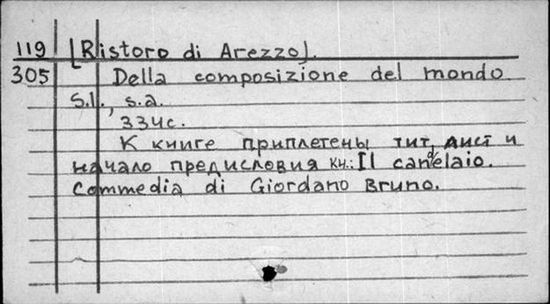 119 [Ristoro di Arezzo].
305 Della composizione del mondo
S.l., s.a.
334с.
К книге приплетены тит. лист и
начало предисловия кн.: Il candelaio.
Commedia di Giordano Bruno.